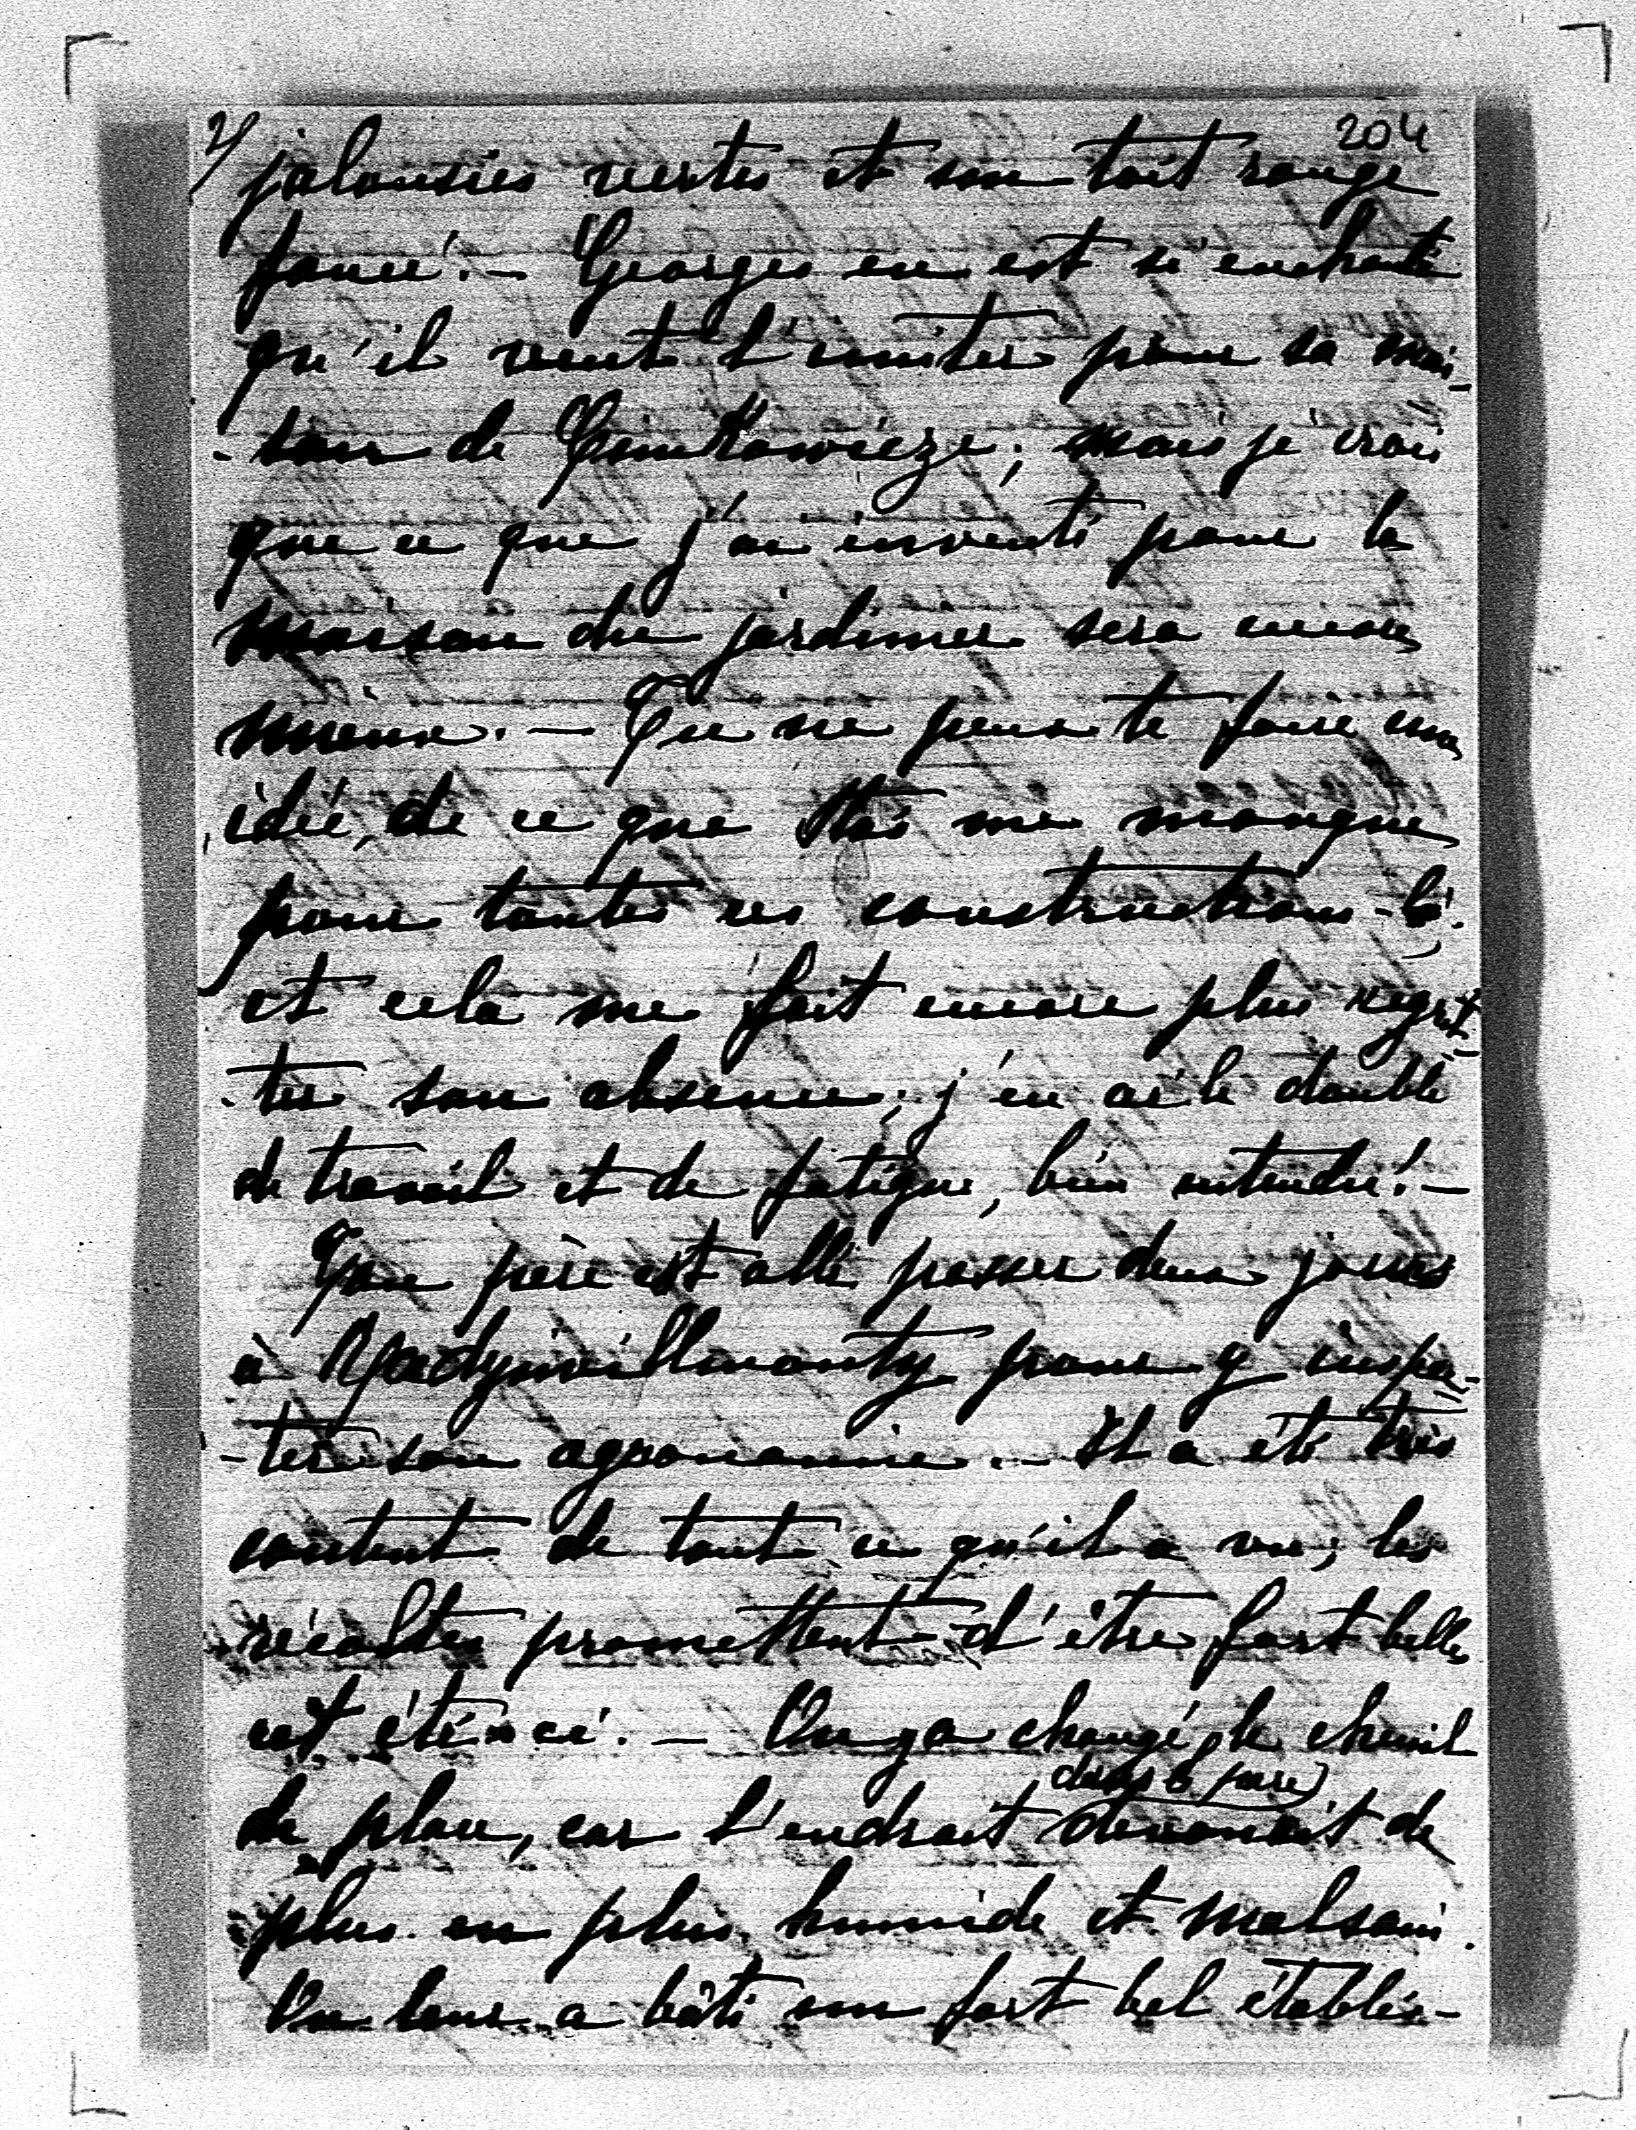 2/ 204
jalousies vertes et son toit rouge
foncé. — Georges en est si enchanté
qu'il veut l'imiter pour sa mai-
-son de Cimkowicze; mais je crois
que ce que j'ai inventé pour la
maison du jardinier sera encore
mieux. — Tu ne peux te faire une
idée, de ce que Stas me manque
pour toutes ces constructions-là.
et cela me fait encore plus regret-
-ter son absence; j'en ai le double
de travail et de fatigue, bien entendu! —
Ton père est allé passer deux jours
à pour y inspec-
-ter son agronomie. — Il a été très
content de tout ce qu'il a vu; les
récoltes promettent d'être fort belles
cet été-ci. — On y a changé le chenil
dans le parc
de place, car l'endroit devenait de
plus en plus humide et malsain.
On leur a bâti un fort bel établis-